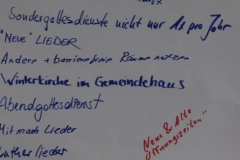 Sondergottesdienste nicht nur 1x pro Jahr
"NEUE" LIEDER
Andere + barrierefreie Räume nutzen
Winterkirche im Gemeindehaus
Abendgottesdienst
Mitmach Lieder
Lutherlieder
Neue & Alte
Öffnungszeiten"